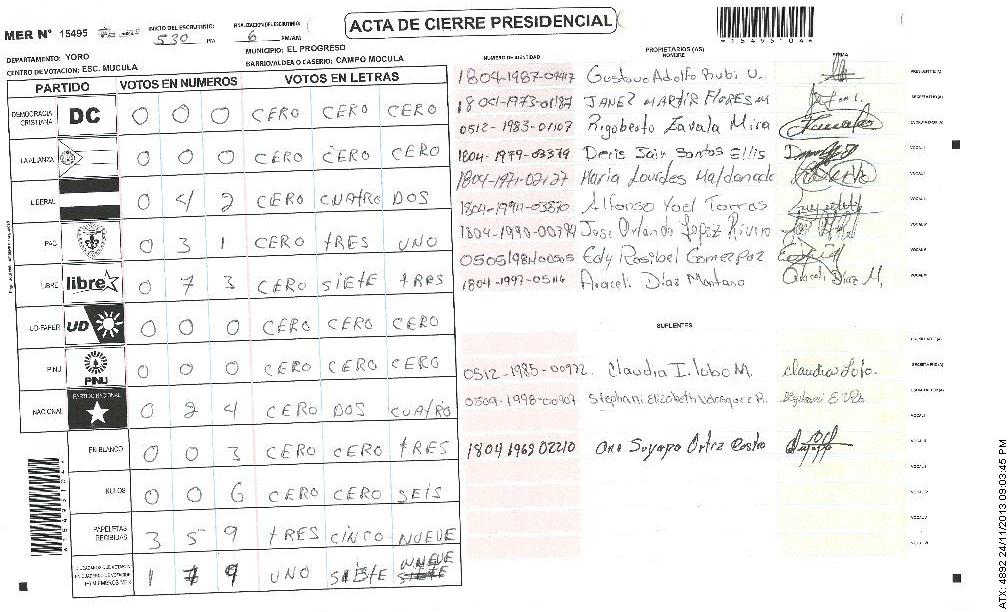 ACTA DE CIERRE PRESIDENCIAL
MER N° 15495
INICIO DEL ESCRUTINIO: 530 PM
FINALIZACION DEL ESCRUTINIO: 6 PM/AM
*15495104*
DEPARTAMENTO: YORO
MUNICIPIO: EL PROGRESO
CENTRO DE VOTACION: ESC. MUCULA
BARRIO/ALDEA O CASERIO: CAMPO MOCULA
PARTIDO VOTOS EN NUMEROS VOTOS EN LETRAS
DEMOCRACIA CRISTIANA DC 0 0 0 CERO CERO CERO
LA ALIANZA 0 0 0 CERO CERO CERO
LIBERAL 0 4 2 CERO CUATRO DOS
PAC 0 3 1 CERO TRES UNO
LIBRE libre 0 7 3 CERO SIETE TRES
UD-FAPER UD 0 0 0 CERO CERO CERO
PINU PINU 0 0 0 CERO CERO CERO
NACIONAL PARTIDO NACIONAL 0 2 4 CERO DOS CUATRO
EN BLANCO 0 0 3 CERO CERO TRES
NULOS 0 0 6 CERO CERO SEIS
PAPELETAS RECIBIDAS 3 5 9 TRES CINCO NUEVE
1 7 9 UNO SIETE NUEVE
NUMERO DE IDENTIDAD PROPIETARIOS (AS) NOMBRE FIRMA
Gustavo Adolfo Rubi U. PRESIDENTE(A)
JANEZ MARTIR FLORES M SECRETARIO(A)
0512-1983-01107 Rigoberto Zavala Mira ESCRUTADOR(A)
1804-1979-03379 Deris Jair Santos Ellis VOCAL I
1804-1971-02127 Maria Lourdes Maldonado
Alfonso Yoel Torres
Jose Orlando Lopez Rivera
Edy Rosibel Gomez Paz
1804-1997-05116 Araceli Díaz Montano Araceli Díaz M.
SUPLENTES
0512-1985-00972. Claudia I. lobo M. claudia Lobo.
Stephani Elizabeth Velasquez R.
1804 1969 02210 Ana Suyapa Ortiz Castro
ATX: 4892 24/11/2013 09:03:45 PM